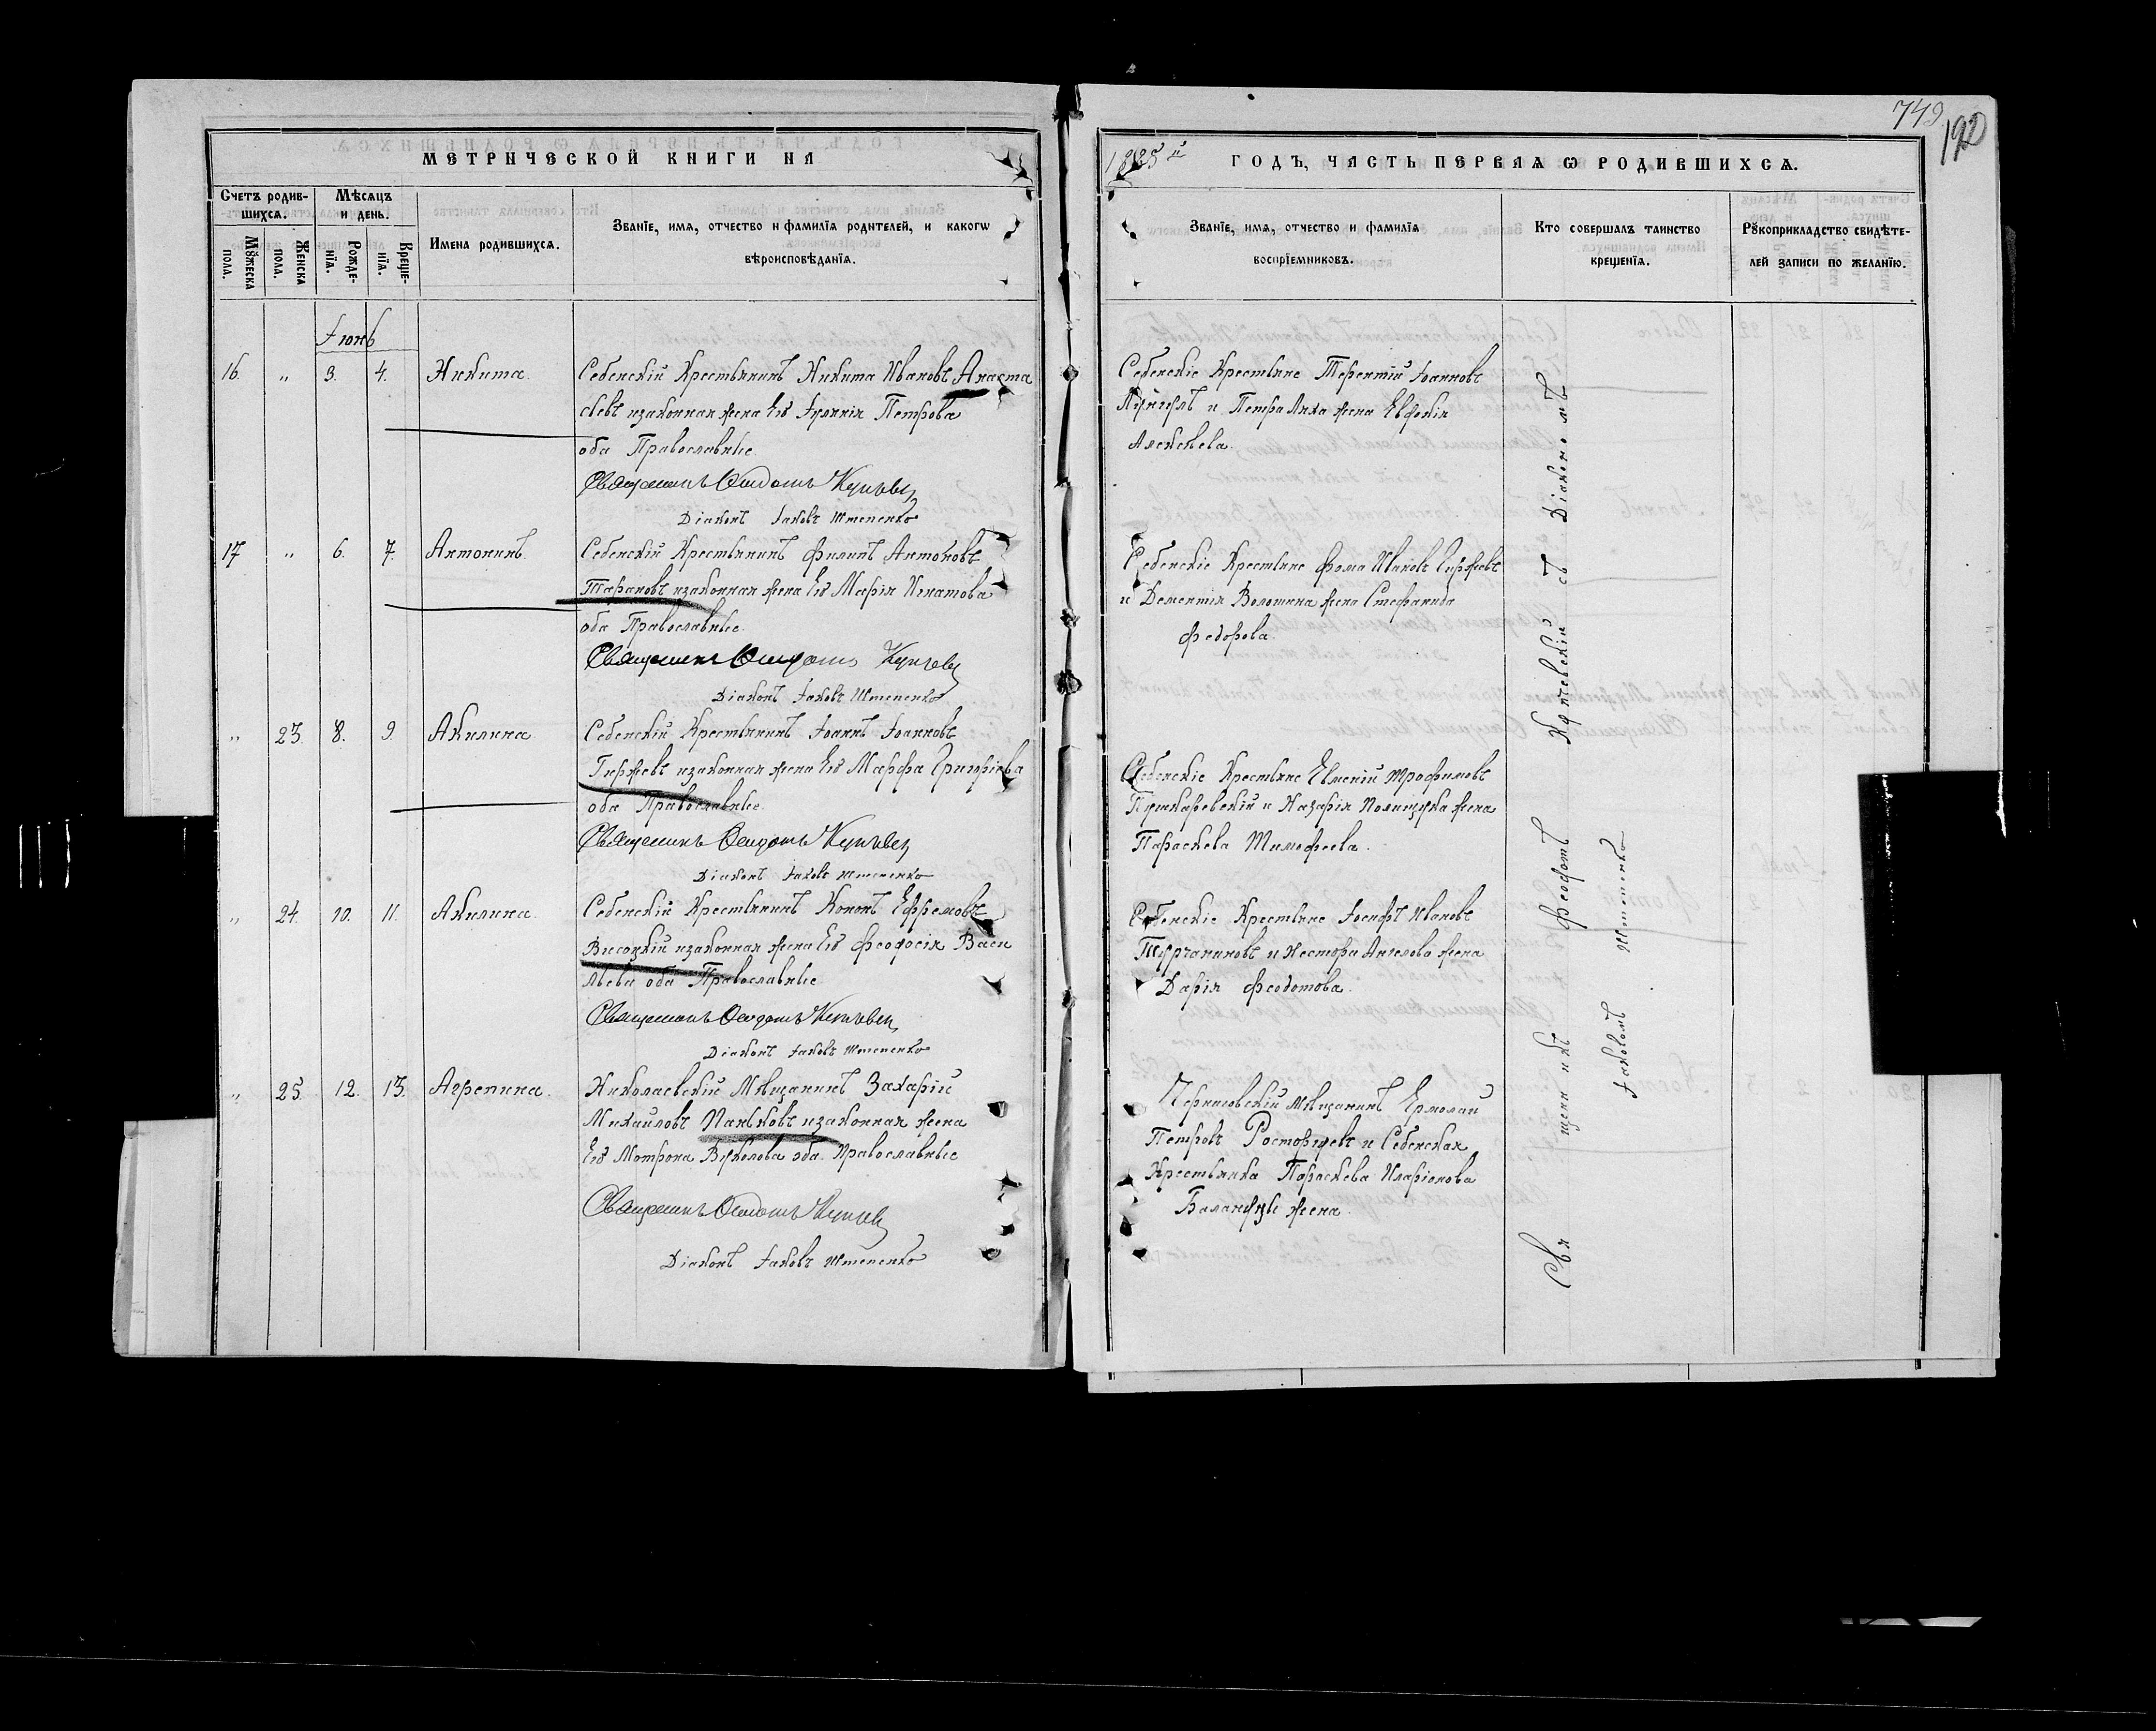 749
192
МЕТРИЧЕСКОЙ КНИГИ НА
1885 й ГОДЪ, ЧАСТЬ ПЕРВАЯ Ѡ РОДИВШИХСѦ.
Счетъ родив-
шихсѧ.
Мѣсѧцъ
и день.
Мꙋжеска
пола.
Женска
пола.
Рожде-
нїѧ.
Креще-
нїѧ.
Имена родившихсѧ.
Званїе, имѧ, отчество и фамилїѧ родителей, и какогѡ
вѣроисповѣданїѧ.
Званїе, имѧ, отчество и фамилїѧ
воспрїемниковъ.
Кто совершалъ таинство
крещенїѧ.
Рꙋкоприкладство свидѣте-
лей записи по желанїю.
Іюнь
16. " 3. 4. Никита. Себенскій Крестьянинъ Никита Ивановъ Анаста
сьевъ изаконная жена Его Ірина Петрова
оба Православные.
Священникъ Феодотъ Купчевскій
Діаконъ Іаковъ Штепенко
Себенскіе Крестьяне Терентій Іоанновъ
и Петра жена Евфокія
Алексѣева.
17 " 6. 7. Антонинъ. Себенскій Крестьянинъ Филипъ Антоновъ
Тарановъ изаконная жена Его Марія Игнатова
оба Православные.
Священникъ Феодотъ Купчевскій
Діаконъ Іаковъ Штепенко
Себенскіе Крестьяне Фома Ивановъ Гиржевъ
и Дементія Волошина жена Стефанида
Федорова.
" 23. 8. 9. Акилина Себенскій Крестьянинъ Іоанъ Іоанновъ
Гиржевъ изаконная жена Его Марфа Григоріева
оба Православные.
Священникъ Феодотъ Купчевскій
Діаконъ Іаковъ Штепенко
Себенскіе Крестьяне Евменій Трофимовъ
Пушкаревскій и Назарія Полищука жена
Параскева Тимофеева.
" 24. 10. 11. Акилина. Себенскій Крестьянинъ Кононъ Ефремовъ
Висоцкій изаконная жена Его Феодосія Васи
льева оба Православные
Священникъ Феодотъ Купчевскій
Діаконъ Іаковъ Штепенко
Себенскіе Крестьяне Іосифъ Ивановъ
Турчаниновъ и Нестора Ангелова жена
Дарія Феодотова.
" 25. 12. 13. Агрепина. Николаевскій Мѣщанинъ Захарій
Михайловъ Паньковъ изаконная жена
Его Мотрона Вуколова оба Православные
Священникъ Феодотъ Купчевскій
Діаконъ Іаковъ Штепенко
Черниговскій мѣщанинъ Ермолай
Петровъ Росторгуевъ и Себенская
Крестьянка Параскева Иларіонова
жена.
Священникъ Феодотъ Купчевскій съ Діакономъ
Іаковомъ Штепенко